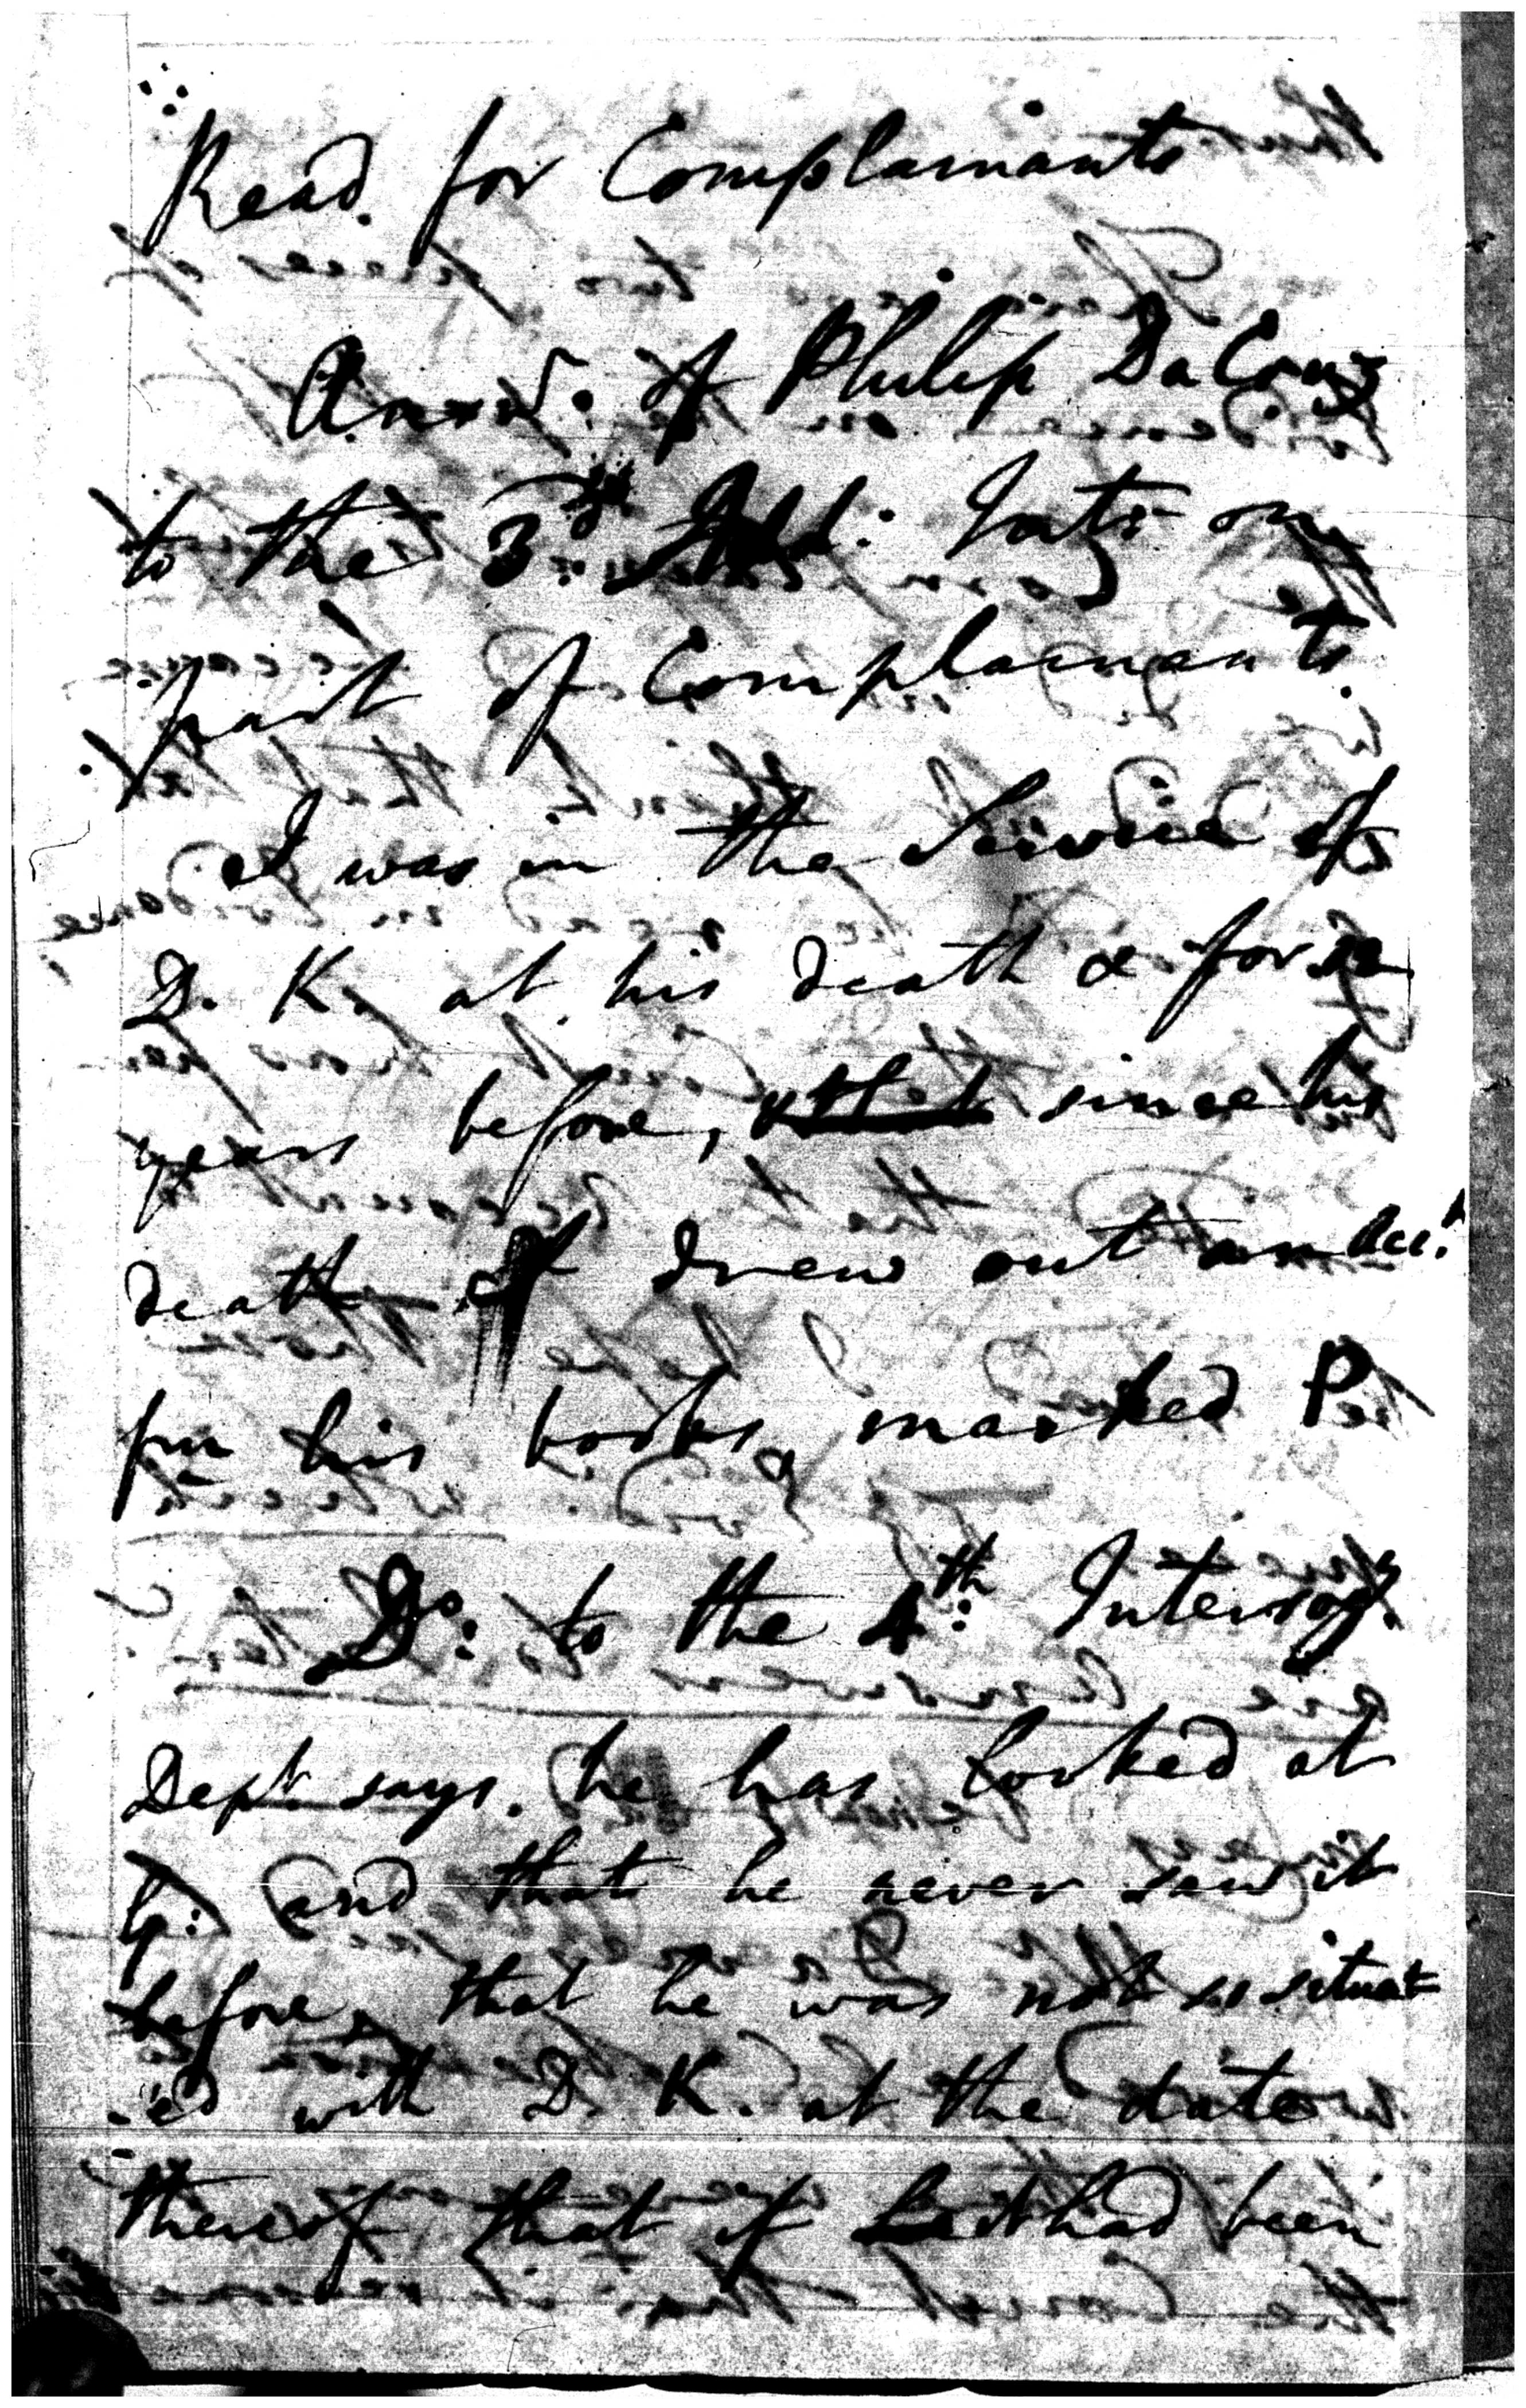 Read for Complainants
Answr: of Philip DaCruz
to the 3rd Add: Intr on
part of Complainants.
I was in the Service of
D. K. at his death & for
years before, since his
death I drew out an Acct
fm his books, marked P
Do: to the 4th: Interrogy.
Dept. says. he has looked at
G: and that he never saw it
before, that he was not so situat
-ed with D. K. at the date
thereof that if it had been